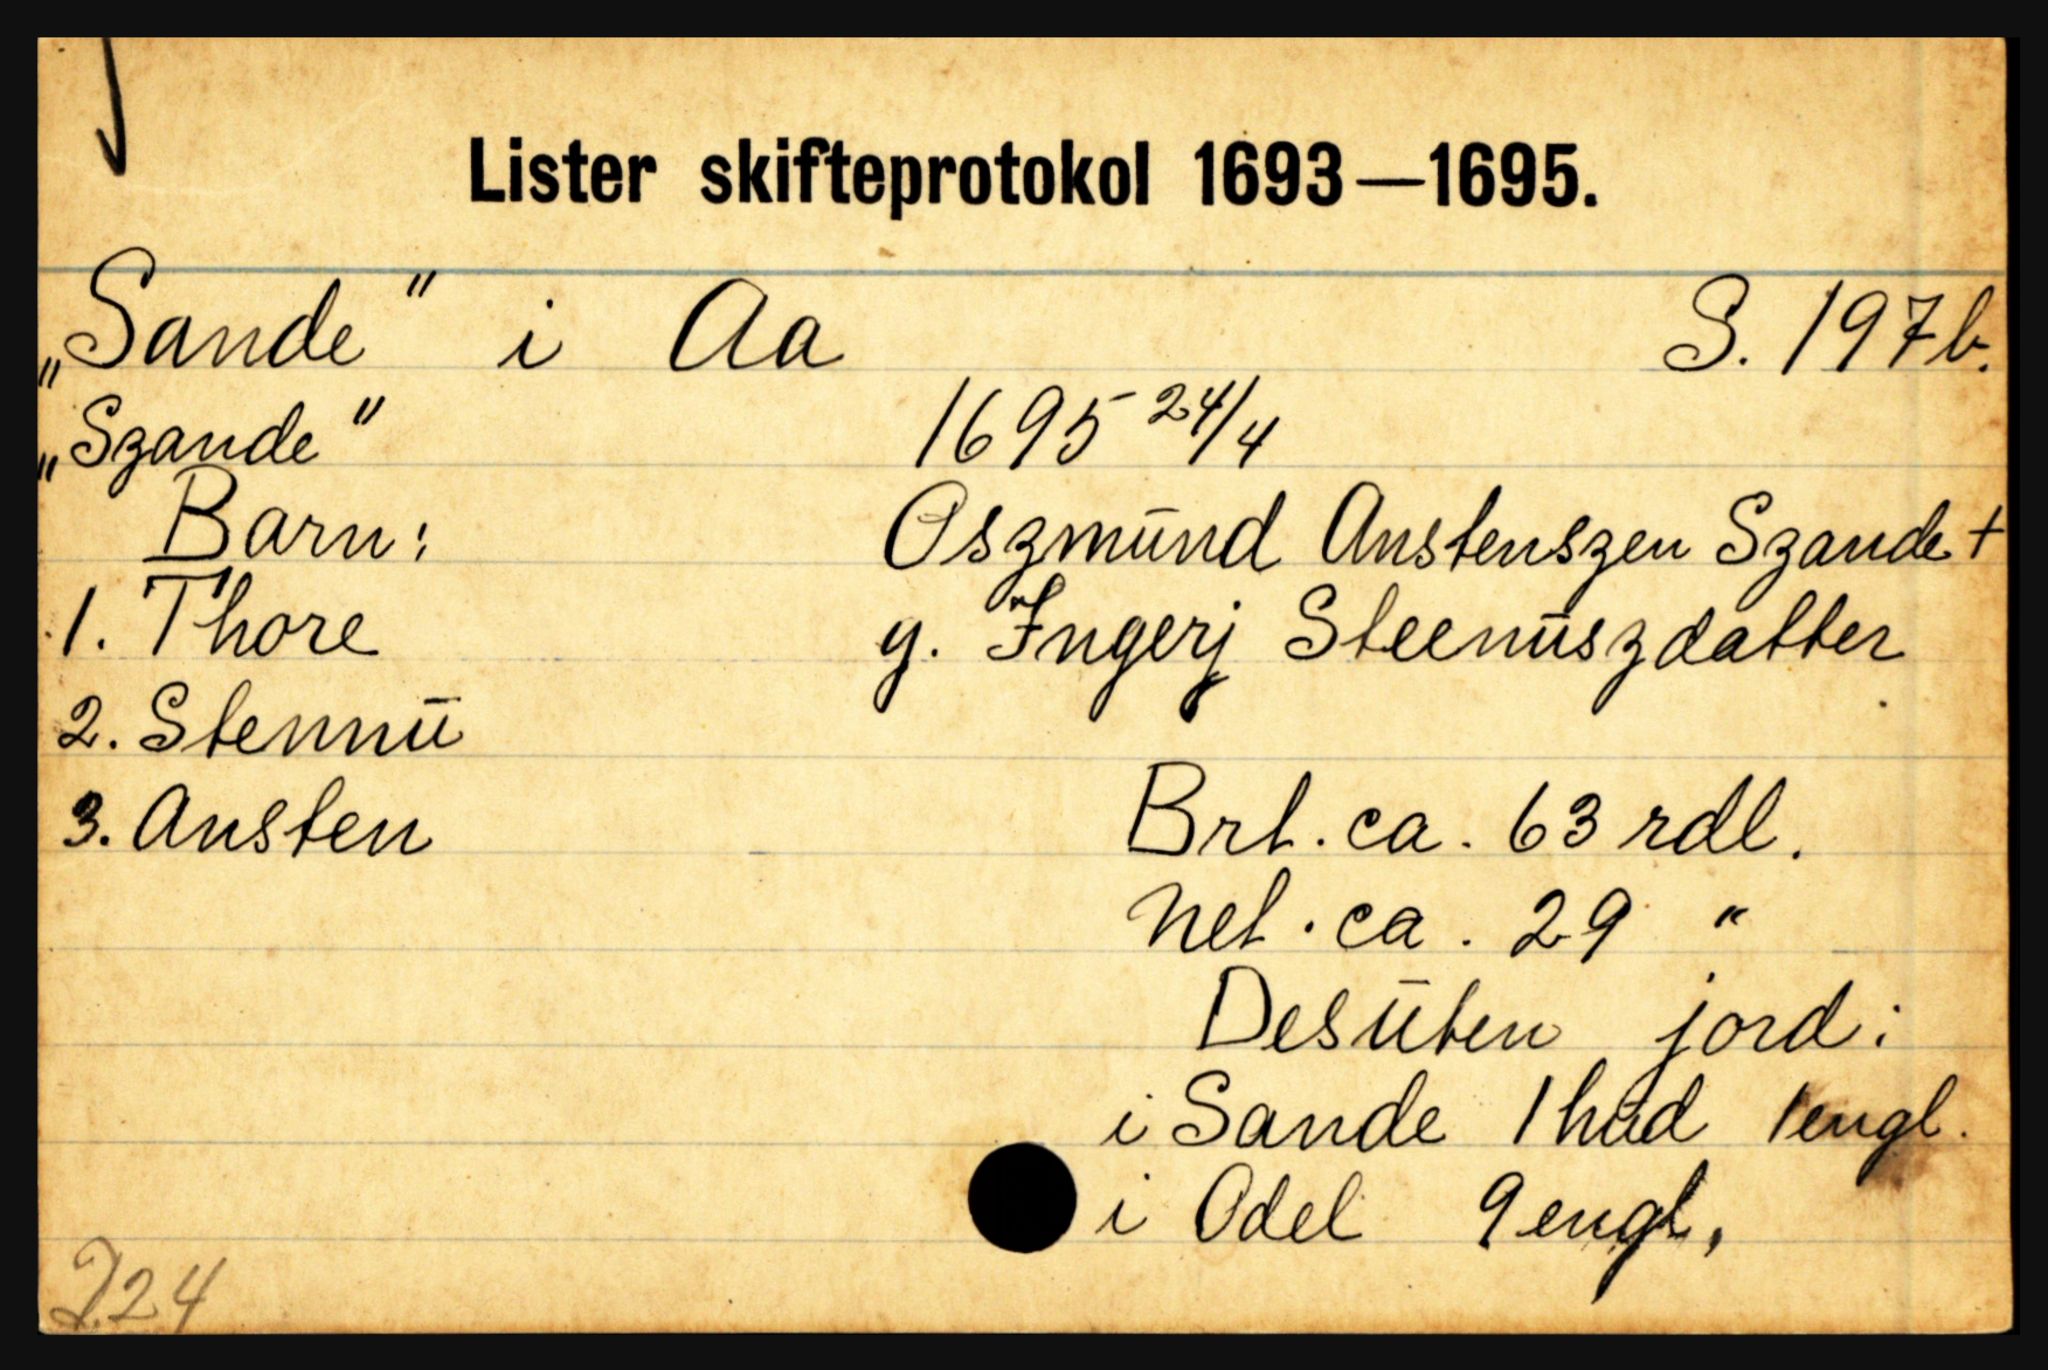 Lister skifteprotokol 1693—1695.
„Sande" i Aa S. 197b.
„Szande" 1695 24/4
Barn: Oszmund Anstenszen Szande +
1. Thore g. Ingerj Steenuszdatter
2. Stennu
3. Ansten Brt. ca. 63 rdl.
Net. ca. 29 "
Desuten jord:
i Sande 1 hud 1 engl.
i Odel 9 engl.